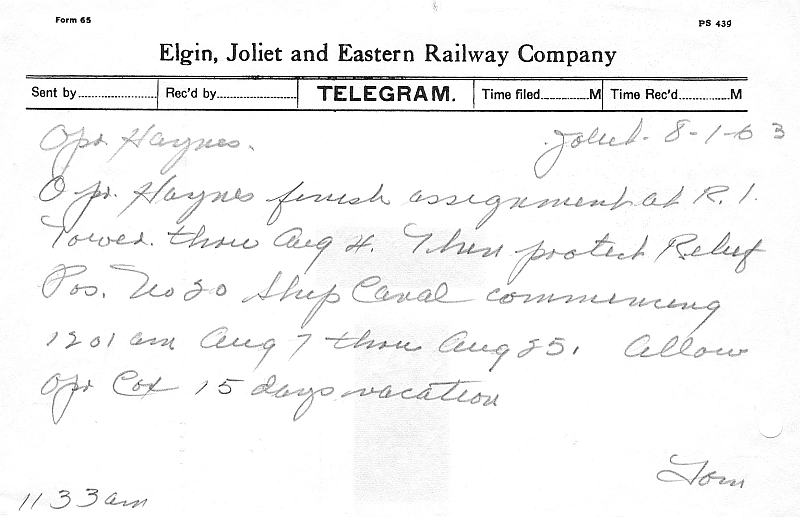 Form 65
PS 439
Elgin, Joliet and Eastern Railway Company
Sent by Rec'd by TELEGRAM. Time filed M Time Rec'd M
Opr. Haynes. Joliet. 8-1-63
Opr. Haynes finish assignment at R. I.
Tower. thru Aug 4. Then protect Relief
Pos. No 20 Ship Canal commencing
1201 am Aug 7 thru Aug 25. Allow
Opr Cox 15 days vacation
Tom
1133 am